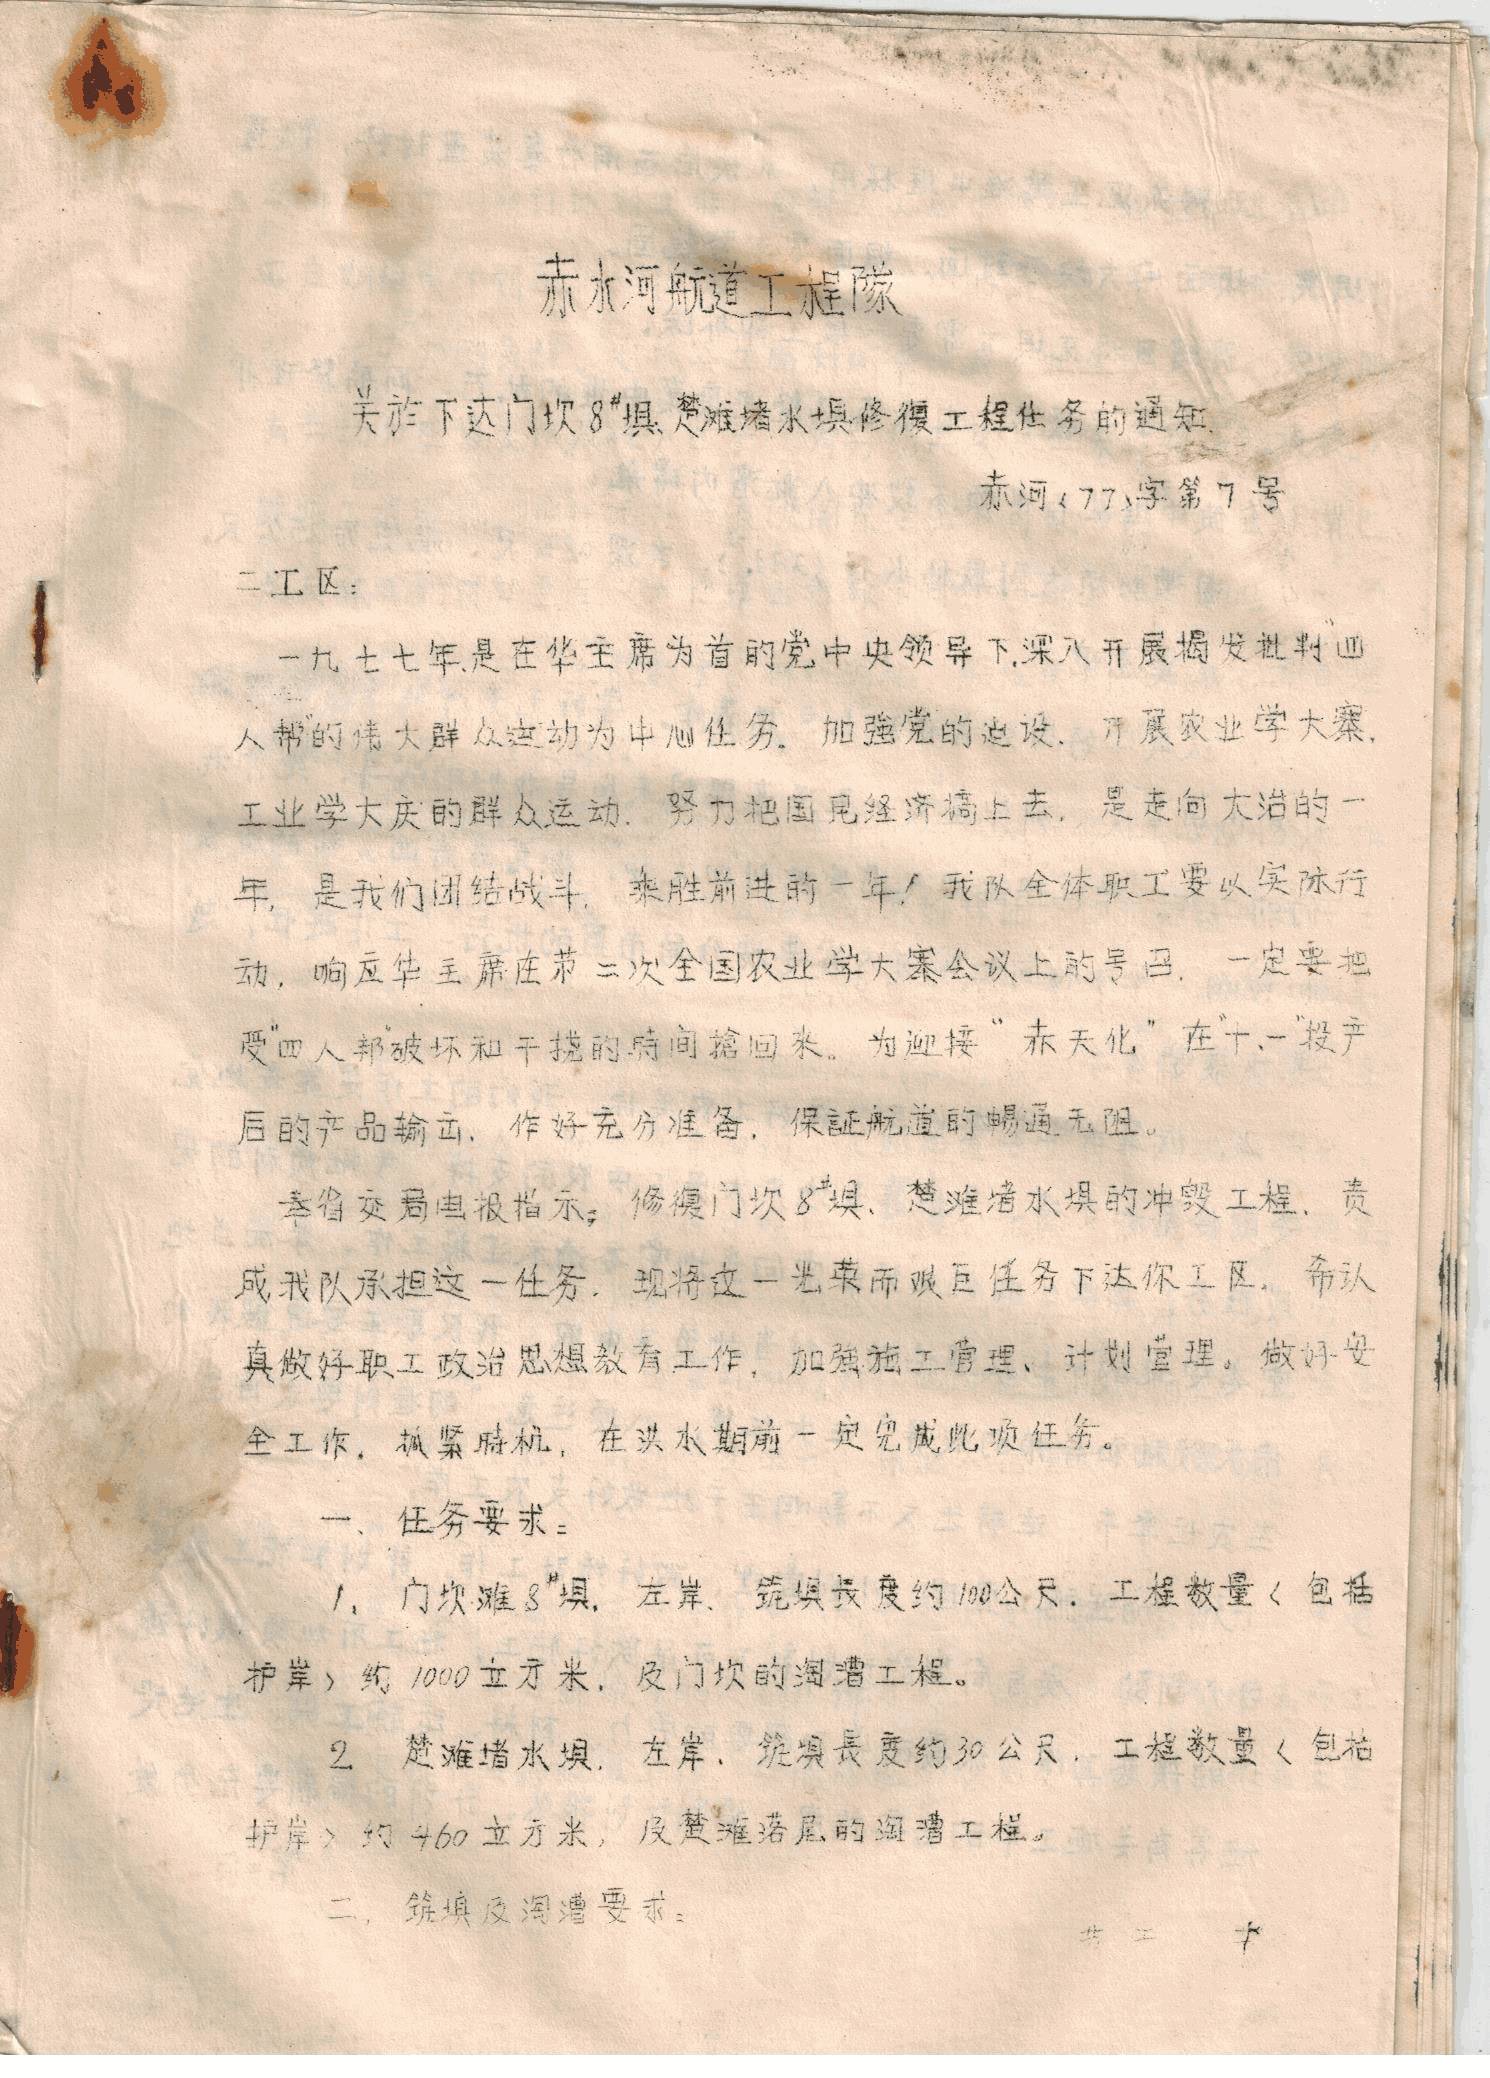 赤水河航道工程隊
关於下达门坎8#埧、楚滩堵水埧修復工程任务的通知.
赤河〈77〉字第7号
二工区:
一九七七年,是在华主席为首的党中央领导下,深入开展揭发批判"四
人帮"的伟大群众运动为中心任务。加強党的建设,开展农业学大寨,
工业学大庆的群众运动,努力把国民经济搞上去,是走向大治的一
年,是我们团结战斗,乘胜前进的一年!我队全体职工要以实际行
动,响应华主席在第二次全国农业学大寨会议上的号召,一定要把
受"四人帮"破坏和干扰的時间搶回来。为迎接"赤天化"在"十、一"投产
后的产品输出,作好充分准备,保証航道的畅通无阻。
奉省交局电报指示:修復门坎8#埧、楚滩堵水埧的冲毁工程,责
成我队承担这一任务,现将这一光荣而艰巨任务下达你工区,希认
真做好职工政治思想教育工作,加强施工管理、计划管理。做好安
全工作,抓紧時机,在洪水期前一定完成此项任务。
一、任务要求:
1、门坎滩8#埧,左岸、筑埧長度约100公尺,工程数量〈包括
护岸〉约1000立方米,及门坎的淘漕工程。
2.楚滩堵水埧,左岸、筑埧長度约30公尺,工程数量〈包括
护岸〉约460立方米,及楚滩落尾的淘漕工程。
二、筑埧及淘漕要求: